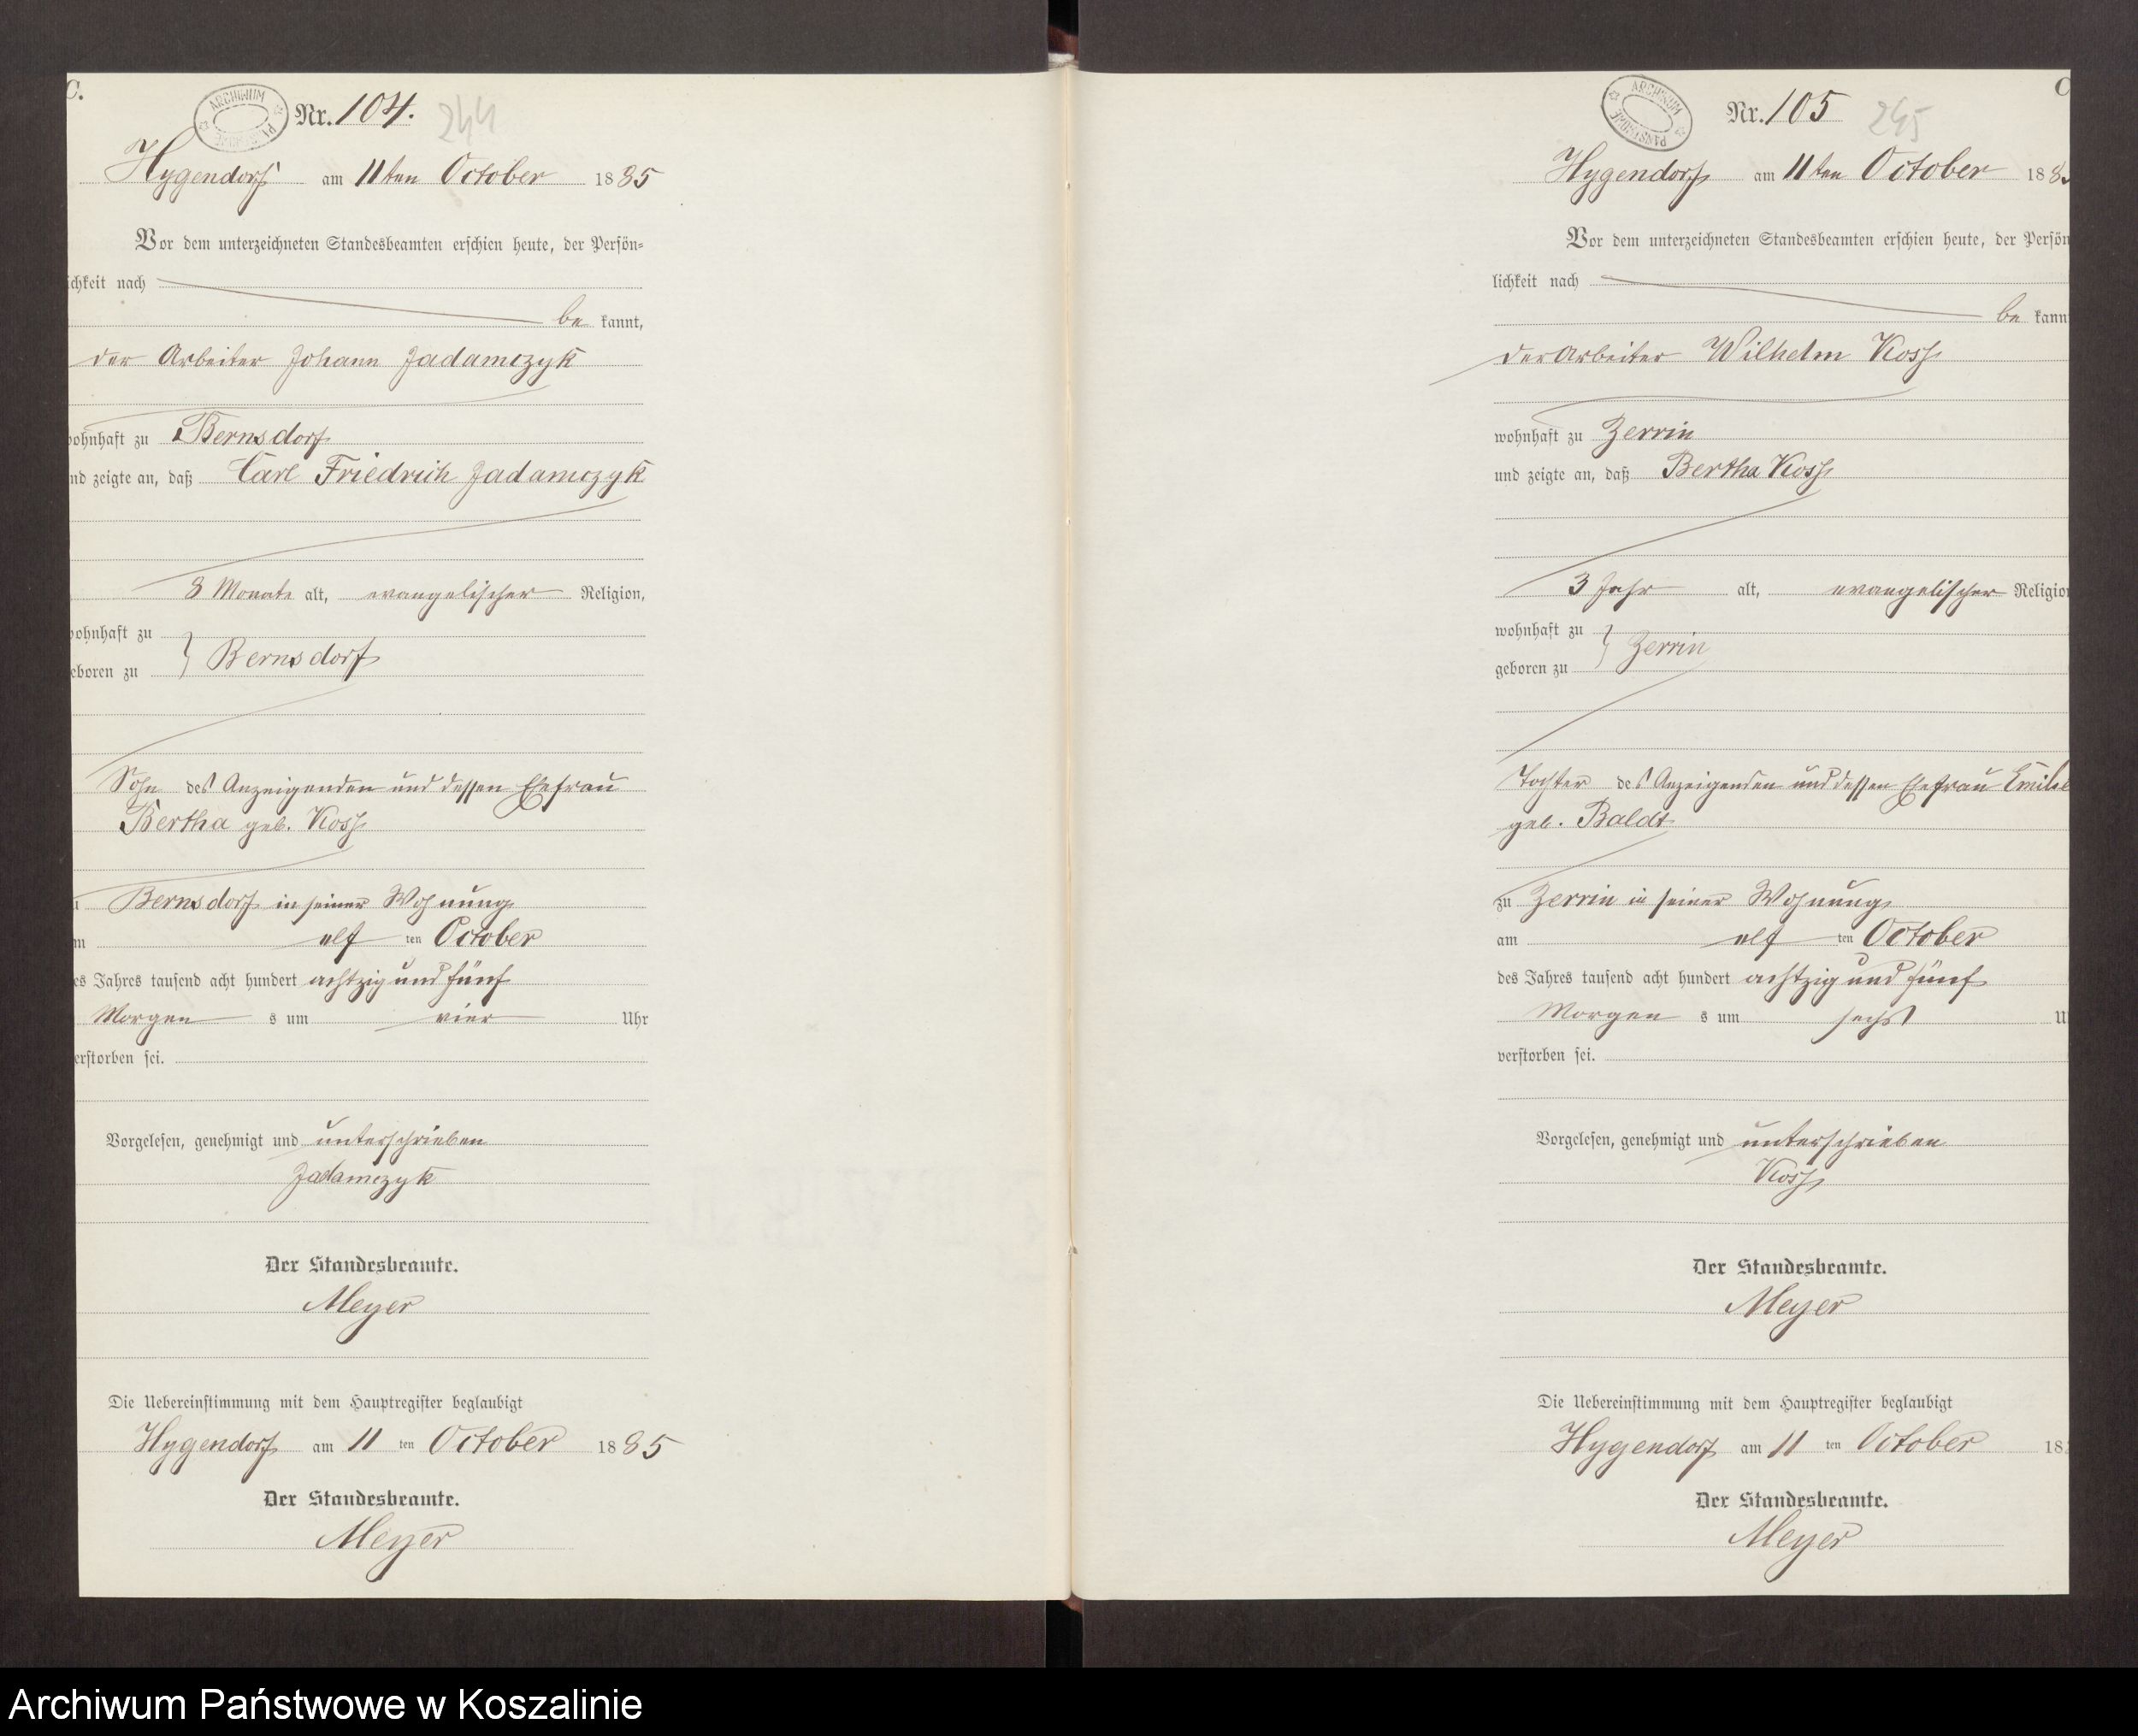 C.
ARCHIWUM PAŃSTWOWE
Nr. 104. 244
Hygendorf am 11ten October 1885
Vor dem unterzeichneten Standesbeamten erschien heute, der Persön=
ichkeit nach
be kannt,
der Arbeiter Johann Jadamczyk
wohnhaft zu Bernsdorf
nd zeigte an, daß Carl Friedrich Jadamczyk
8 Monate alt, evangelischer Religion,
wohnhaft zu
eboren zu } Bernsdorf
Sohn des Anzeigenden und dessen Ehefrau
Bertha geb. Koss
Bernsdorf in seiner Wohnung
m elf ten October
es Jahres tausend acht hundert achtzig und fünf
Morgen s um vier Uhr
erstorben sei.
Vorgelesen, genehmigt und unterschrieben
Jadamczyk
Der Standesbeamte.
Meyer
Die Uebereinstimmung mit dem Hauptregister beglaubigt
Hygendorf am 11 ten October 1885
Der Standesbeamte.
Meyer
C
ARCHIWUM PAŃSTWOWE
Nr. 105 245
Hygendorf am 11ten October 188
Vor dem unterzeichneten Standesbeamten erschien heute, der Persön
lichkeit nach
be kann
der Arbeiter Wilhelm Koss
wohnhaft zu Zerrin
und zeigte an, daß Bertha Koss
3 Jahr alt, evangelischer Religio
wohnhaft zu
geboren zu } Zerrin
Tochter des Anzeigenden und dessen Ehefrau Emilie
geb. Baldt
zu Zerrin in seiner Wohnung
am elf ten October
des Jahres tausend acht hundert achtzig und fünf
Morgen s um sechs U
verstorben sei.
Vorgelesen, genehmigt und unterschrieben
Koss
Der Standesbeamte.
Meyer
Die Uebereinstimmung mit dem Hauptregister beglaubigt
Hygendorf am 11 ten October 18
Der Standesbeamte.
Meyer
Archiwum Państwowe w Koszalinie